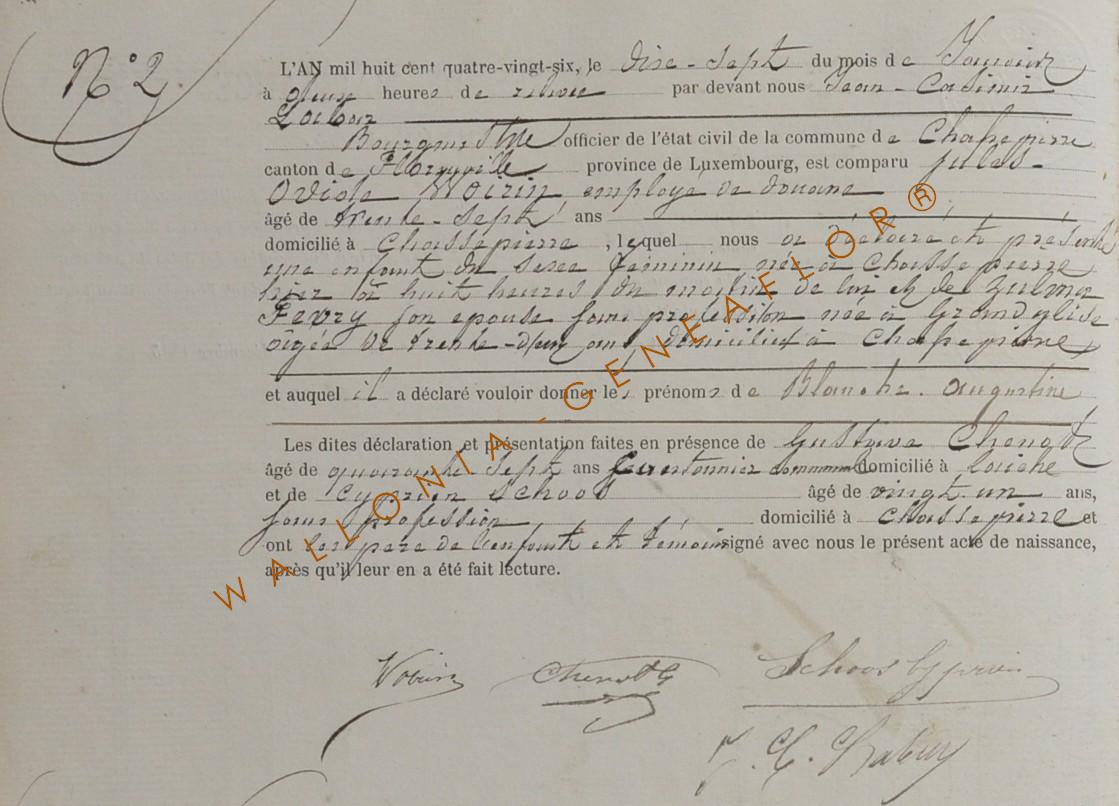 N° 2.
L'AN mil huit cent quatre-vingt-six, le dix-sept du mois de Janvier
à deux heures de relevée par devant nous Jean-Casimir
Bourgmestre officier de l'état civil de la commune de Chassepierre
canton de Florenville province de Luxembourg, est comparu Jules-
Ovide Woirin employé de douane
âgé de trente-sept ans
domicilié à Chassepierre, lequel nous a déclaré et présenté
une enfant du sexe féminin née à Chassepierre
hier à huit heures du matin de lui et de Zulma
Fevry son epouse sans profession née à Grandeglise
âgée de trente-deux ans, domiciliée à Chassepierre
et auquel il a déclaré vouloir donner les prénoms de Blanche. augustine
Les dites déclaration et présentation faites en présence de Gustave Chenot
âgé de quarante sept ans Cantonnier communal domicilié à laiche
et de Cyprien Schoos âgé de vingt-un ans,
sans profession domicilié à Chassepierre et
ont les pere de l'enfant et témoins signé avec nous le présent acte de naissance,
après qu'il leur en a été fait lecture.
Chenot G
Schoos Cyprien
J. C.
WALLONIA-GENEAFLOR®